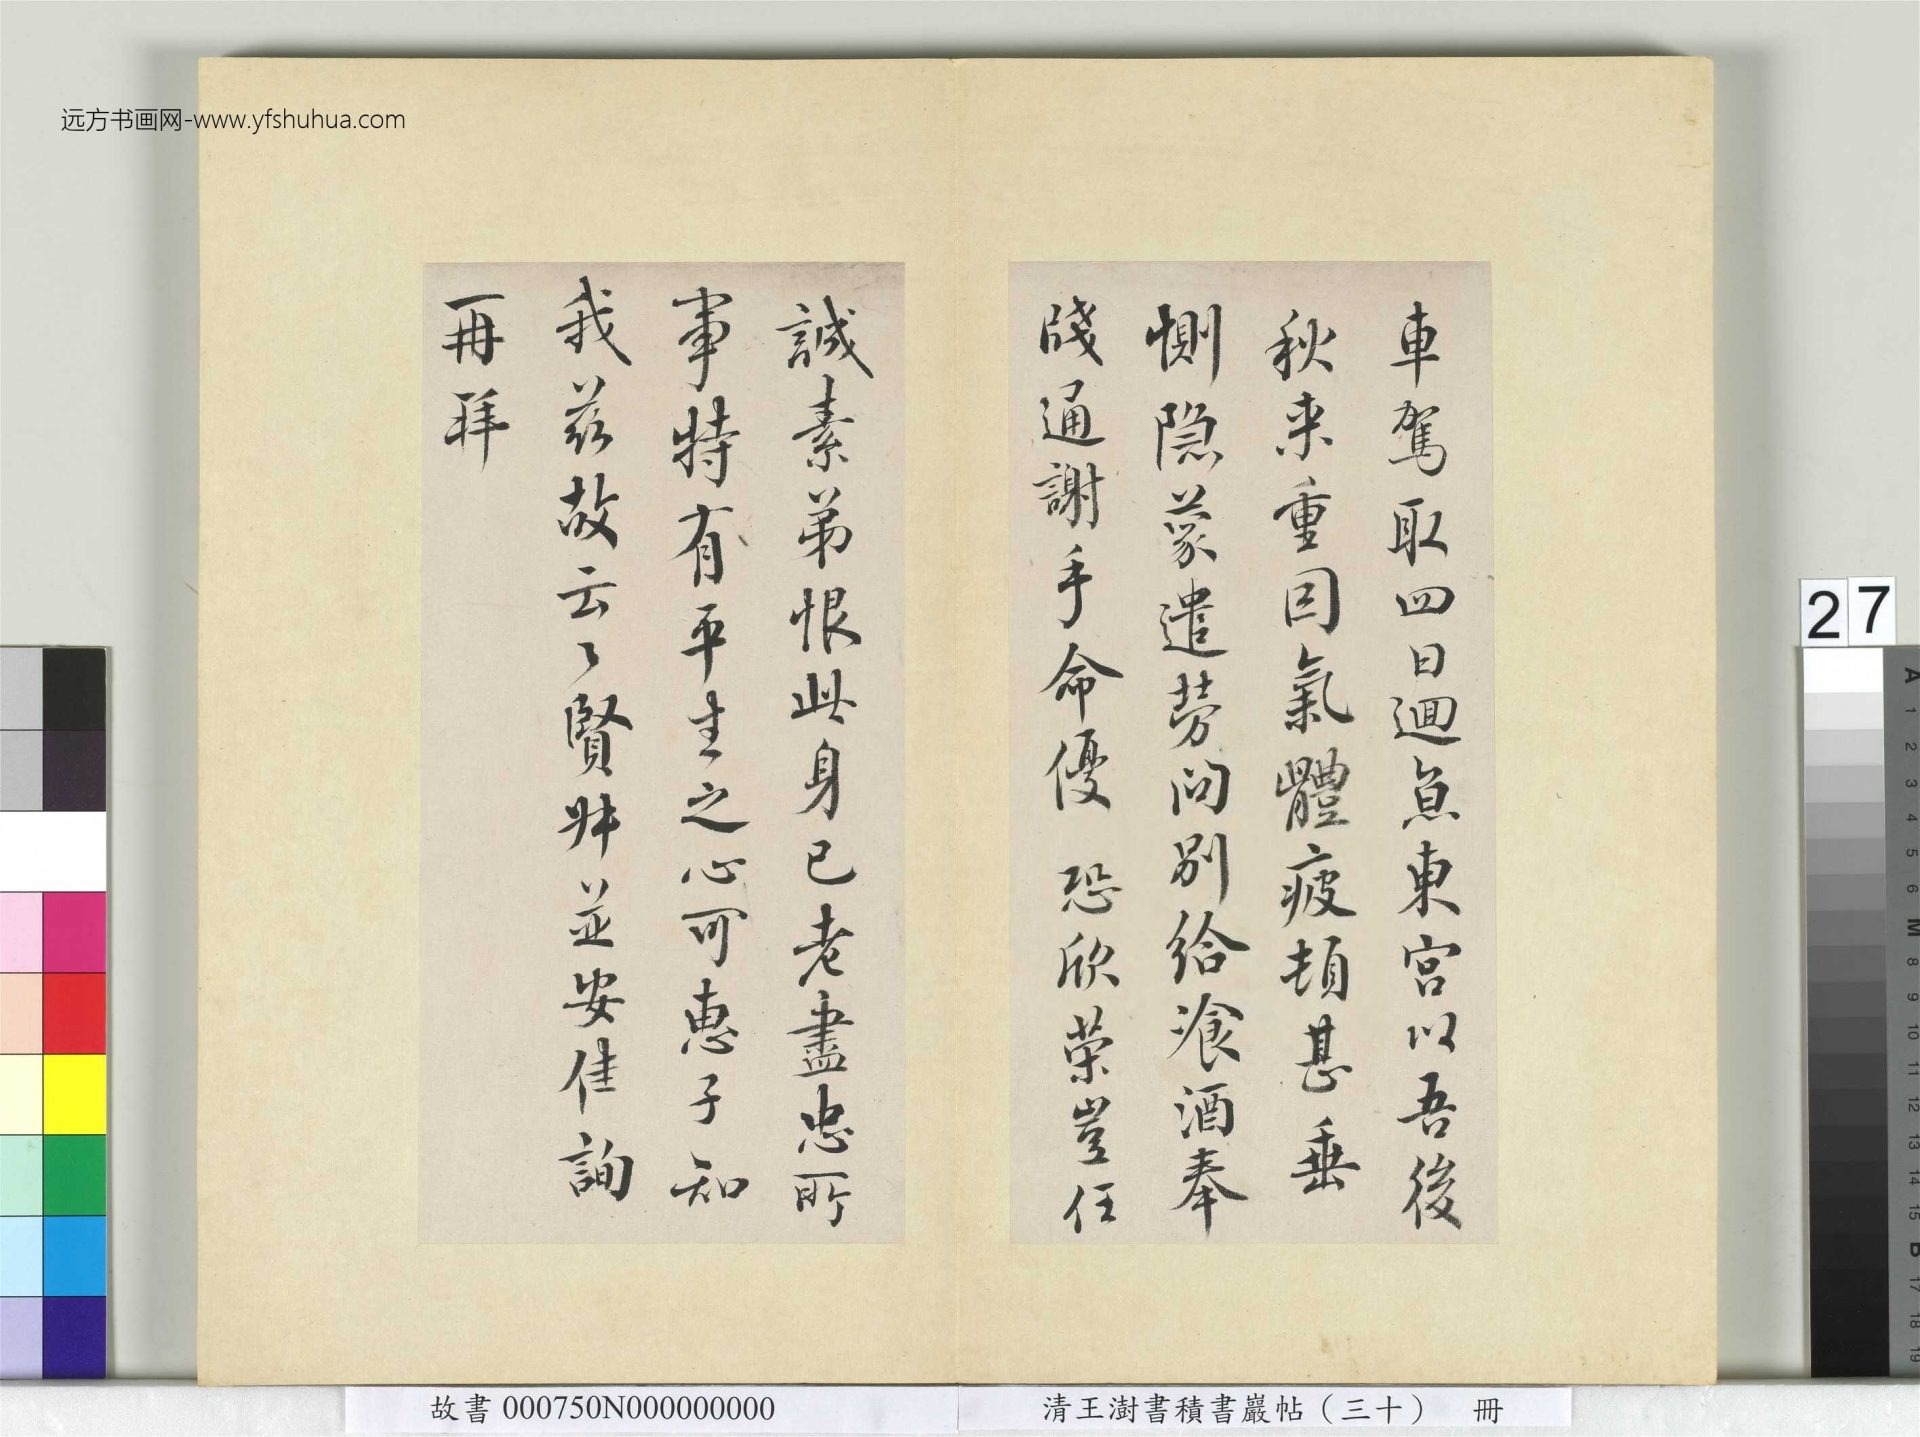 远方书画网-www.yfshuhua.com
車駕取四日迴魚東宮以吾後
秋来重因氣體疲頓甚垂
惻隐蒙遣劳问别給飡酒奉
牋通謝手命優 恐欣荣豈任
誠素弟恨此身已老盡忠所
事特有平生之心可惠子知
我兹故云〻賢并並安佳詢
再拜
27
故書 000750N000000000
清王澍書積書巖帖（三十） 冊